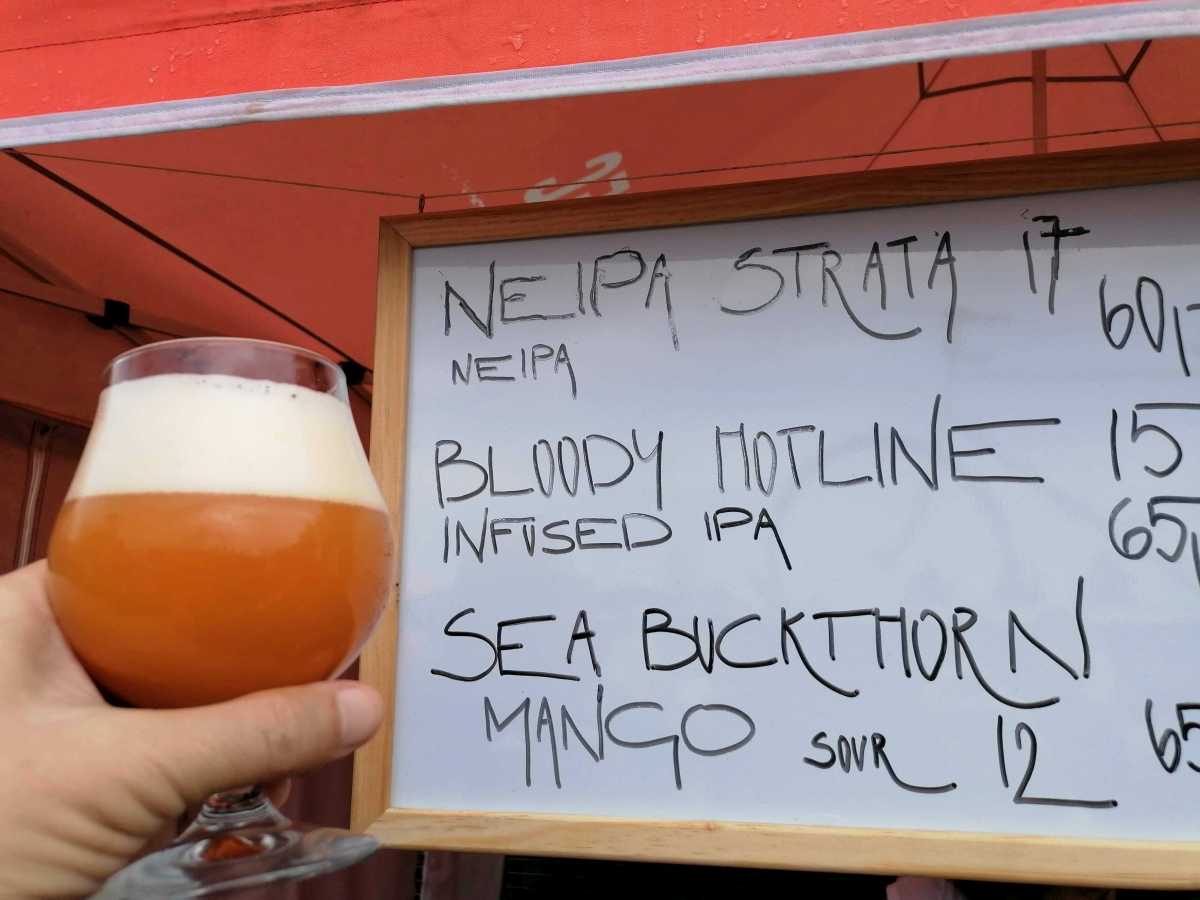 NEIPA STRATA 17
60,-
NEIPA
BLOODY HOTLINE 15
INFUSED IPA 65,
SEA BUCKTHORN
MANGO SOUR 12 65